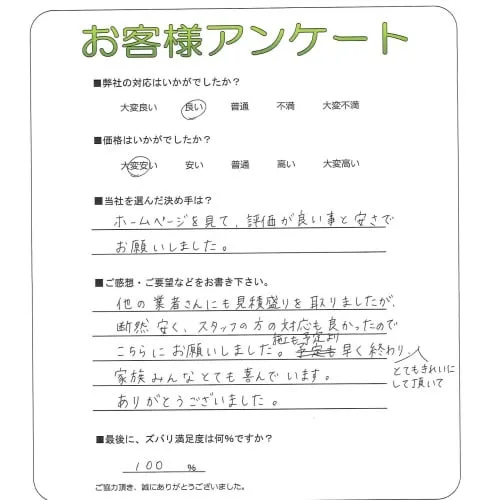 お客様アンケート
■弊社の対応はいかがでしたか?
大変良い 良い 普通 不満 大変不満
■価格はいかがでしたか?
大変安い 安い 普通 高い 大変高い
■当社を選んだ決め手は?
ホームページを見て、評価が良い事と安さで
お願いしました。
■ご感想・ご要望などをお書き下さい。
他の業者さんにも見積盛りを取りましたが、
断然安く、スタッフの方の対応も良かったので
こちらにお願いしました。予定も早く終わり、
予定より
とてもきれいに
して頂いて
家族みんなとても喜んでいます。
ありがとうございました。
■最後に、ズバリ満足度は何%ですか?
100 %
ご協力頂き、誠にありがとうございました。